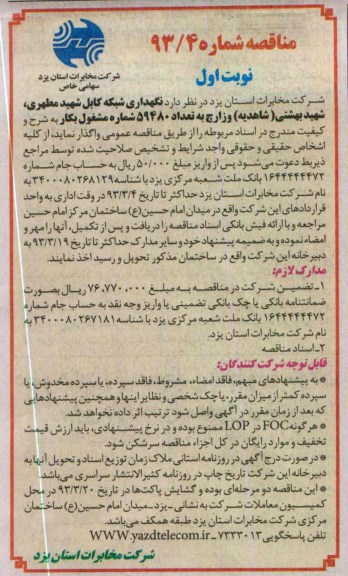 مناقصه شماره ۹۳/۴
نوبت اول
شرکت مخابرات استان یزد
سهامی خاص
شرکت مخابرات استان یزد در نظر دارد نگهداری شبکه کابل شهید مطهری،
شهید بهشتی( شاهدیه) وزارچ به تعداد ۵۹۴۸۰ شماره مشغول بکار به شرح و
کیفیت مندرج در اسناد مربوطه را از طریق مناقصه عمومی واگذار نماید، از کلیه
اشخاص حقیقی و حقوقی واجد شرایط و تشخیص صلاحیت شده توسط مراجع
ذیربط دعوت می‌شود پس از واریز مبلغ ۵۰/۰۰۰ ریال به حساب جام شماره
۱۶۴۴۴۴۴۴۷۲ بانک ملت شعبه مرکزی یزد با شناسه ۳۴۰۰۰۸۰۲۶۸۱۳۹ به
نام شرکت مخابرات استان یزد حداکثر تا تاریخ ۹۳/۳/۴ در وقت اداری به واحد
قراردادهای این شرکت واقع در میدان امام حسین(ع) ساختمان مرکز امام حسین
مراجعه و با ارائه فیش بانکی اسناد مناقصه را دریافت و پس از تکمیل، آنها را مهر و
امضاء نموده و به ضمیمه پیشنهاد خود و سایر مدارک حداکثر تا تاریخ ۹۳/۳/۱۹ به
دبیرخانه این شرکت واقع در ساختمان مذکور تحویل و رسید اخذ نمایند.
مدارک لازم:
۱ـ تضمین شرکت در مناقصه به مبلغ ۷۶,۷۷۰,۰۰۰ ریال بصورت
ضمانتنامه بانکی یا چک بانکی تضمینی یا واریز وجه نقد به حساب جام شماره
۱۶۴۴۴۴۴۴۷۲ بانک ملت شعبه مرکزی یزد با شناسه ۳۴۰۰۰۸۰۲۶۷۱۸۱ به
نام شرکت مخابرات استان یزد.
۲ـ اسناد مناقصه
قابل توجه شرکت کنندگان:
* به پیشنهادهای مبهم، فاقد امضاء، مشروط، فاقد سپرده، یا سپرده مخدوش، یا
سپرده کمتر از میزان مقرر، یا چک شخصی و نظایر اینها و همچنین پیشنهادهایی
که بعد از زمان مقرر در آگهی واصل شود ترتیب اثر داده نخواهد شد.
* هرگونه FOC در LOP ممنوع بوده و در نرخ پیشنهادی، باید ارزش قیمت
تخفیف و موارد رایگان در کل اجزاء مناقصه سرشکن شود.
* در صورت درج آگهی در روزنامه استانی ملاک زمان توزیع اسناد و تحویل آنها به
دبیرخانه این شرکت تاریخ چاپ در روزنامه کثیرالانتشار سراسری می‌باشد.
* این مناقصه دو مرحله‌ای بوده و گشایش پاکت‌ها در تاریخ ۹۳/۳/۲۰ در محل
کمیسیون معاملات شرکت به نشانی ـ یزد ـ میدان امام حسین(ع) ساختمان
مرکزی شرکت مخابرات استان یزد طبقه همکف می‌باشد.
تلفن پاسخگویی ۷۳۳۳۰۱۳ـ WWW.yazdtelecom.ir
شرکت مخابرات استان یزد